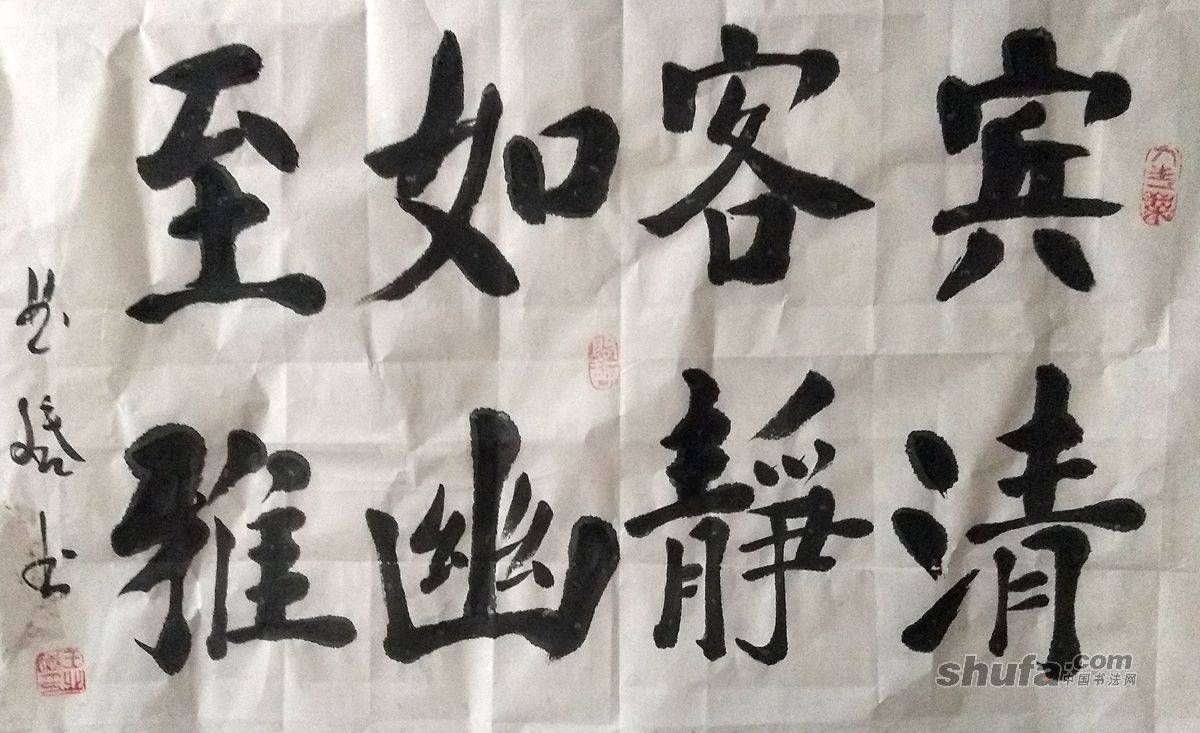 宾客如至
清靜幽雅
书
shufa.com
中国书法网